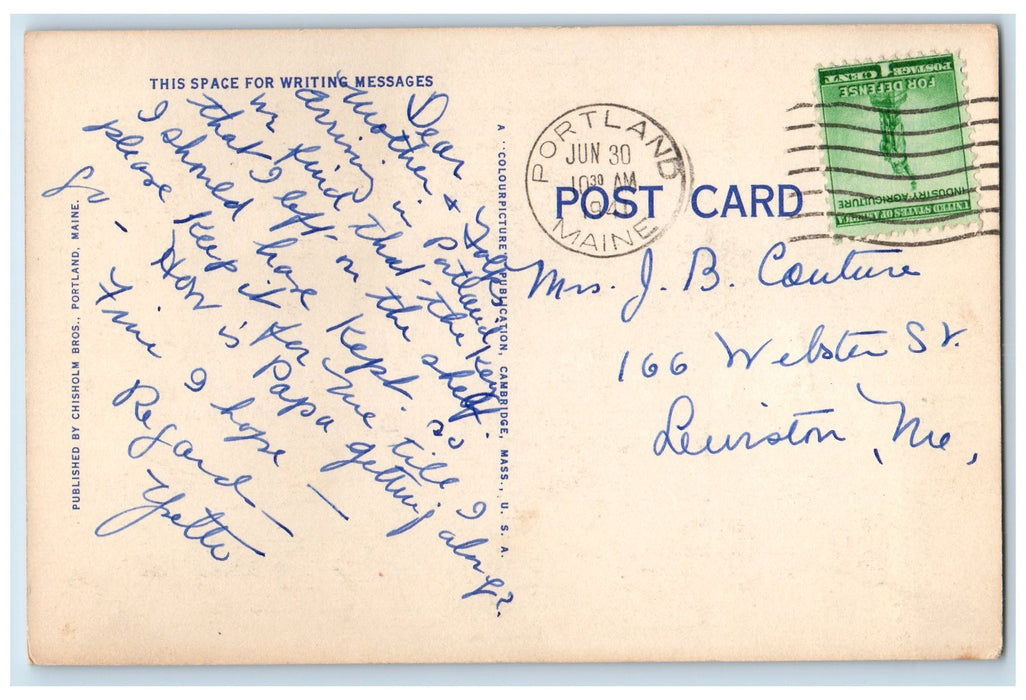 THIS SPACE FOR WRITING MESSAGES
Dear
Mother & Folks
arriving in Patland
we find that the Key
that I left on the shelf.
I should have Kept. so
please Keep it for me till I
go - How is Papa getting along?
Fine I hope -
Regard -
Yvette
PUBLISHED BY CHISHOLM BROS., PORTLAND, MAINE.
A "COLOURPICTURE" PUBLICATION, CAMBRIDGE, MASS., U. S. A.
PORTLAND
JUN 30
10 30 AM
MAINE
POST CARD
UNITED STATES OF AMERICA
INDUSTRY AGRICULTURE
FOR DEFENSE
1 CENT POSTAGE
Mrs. J. B. Couture
166 Webster St.
Lewiston, Me,